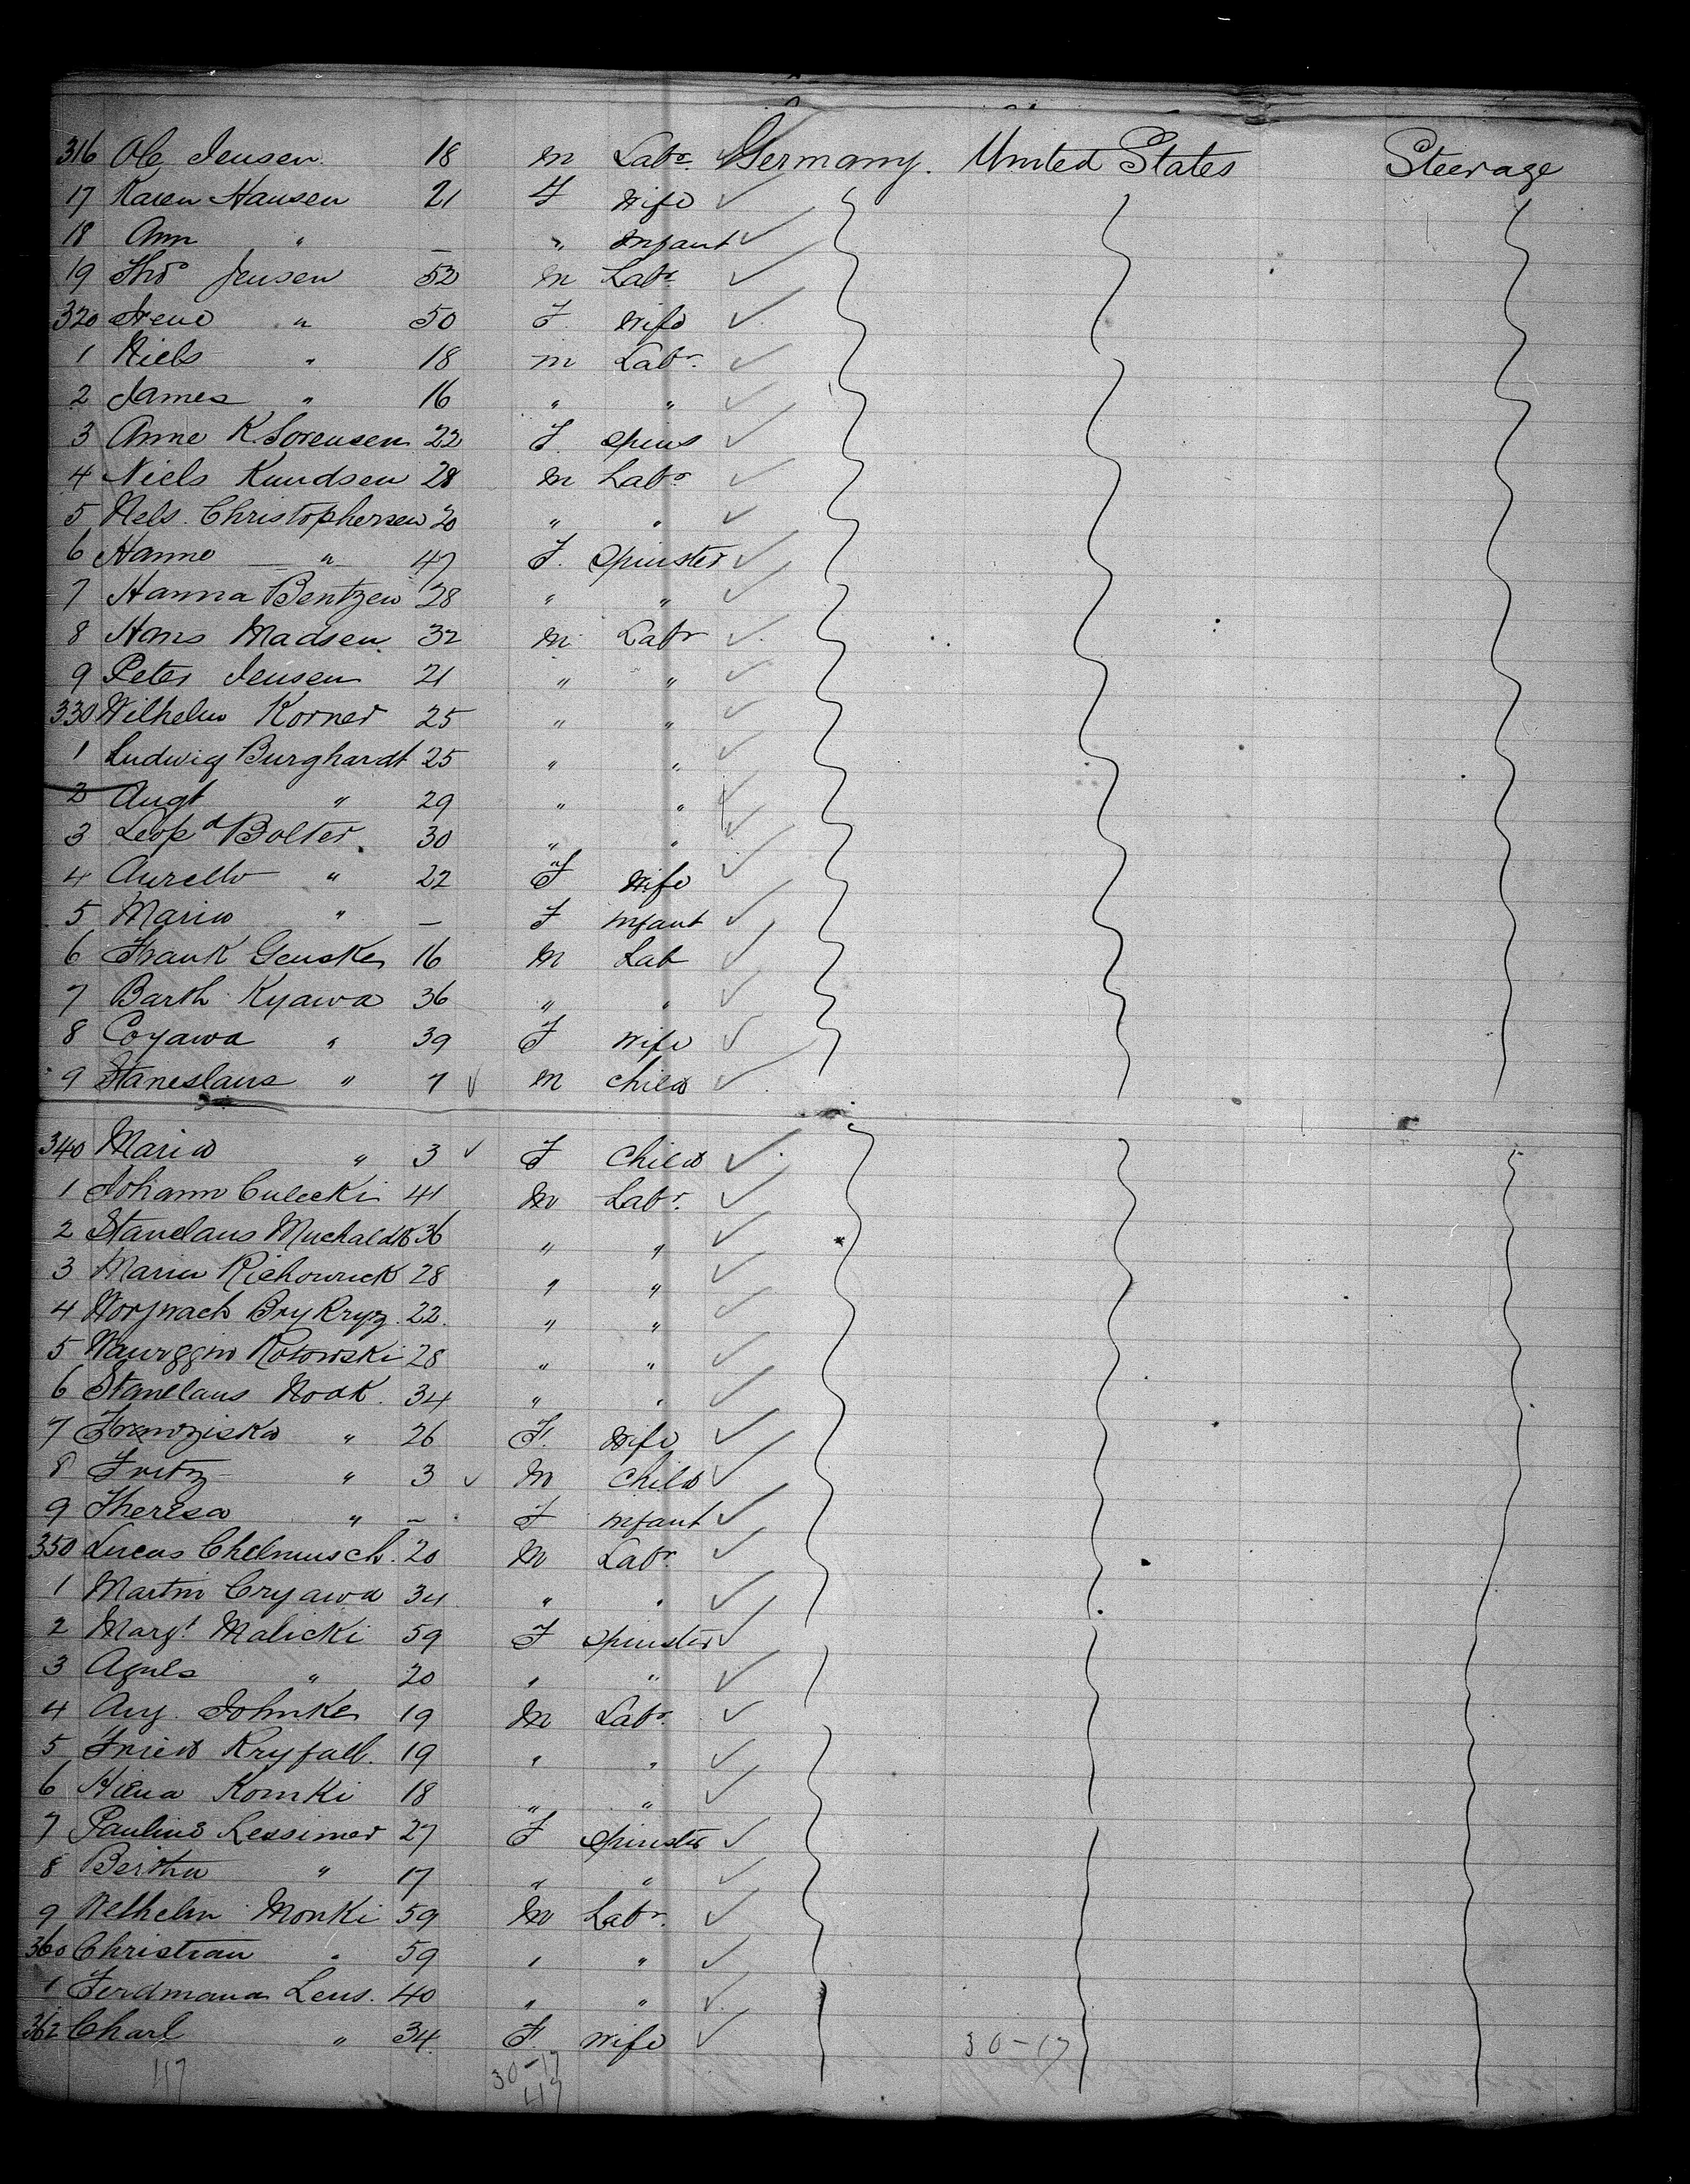 316 Ole Jensen 18 m Labr. Germany. United States Steerage
17 Karen Hansen 21 F Wife
18 Ann " — " Infant
19 Thos Jensen 52 m Labr.
320 Irene " 50 F. Wife
1 Niels " 18 m Labr.
2 James " 16 " "
3 Anne K. Sorensen 22 F. Spins
4 Niels Knudsen 28 m Labr
5 Nels. Christophersen 20 " "
6 Hanne " 47 F. Spinster
7 Hanna Bentzen 28 " "
8 Hans Madsen 32 m Labr
9 Peter Jensen 21 " "
330 Wilhelm Korner 25 " "
1 Ludwig Burghardt 25 " "
2 Augt " 29 " "
3 Leopd Bolter 30 " "
4 " 22 F Wife
5 Maria " — F Infant
6 Frank Genske 16 m Lab
7 Barth Kyawa 36 " "
8 Coyawa " 39 F Wife
9 Staneslaus " 7 m Child
340 Maria " 3 F Child
1 Johann Culecki 41 m Labr.
2 Stanelaus 36 " "
3 28 " "
4 22. " "
5 Rotowski 28 " "
6 Stanelaus Noak. 34 " "
7 Franziska " 26 F. Wife
8 Fritz " 3 m Child
9 Theresa " — F Infant
350 Lucas Chelmusch. 20 m Labr.
1 Martin Cryawa 34 " "
2 Margt. Malicki 59 F Spinster
3 Agnes " 20 " "
4 Aug. Johnke 19 m Labr.
5 19 " "
6 Komki 18 " "
7 Pauline Lessimer 27 F Spinster
8 Bertha " 17 " "
9 Welhelm Monki 59 m Labr.
360 Christian " 59 " "
1 Ferdmana Lens. 40 " "
362 Charl " 34 F. Wife
30-17
30-17
47
47